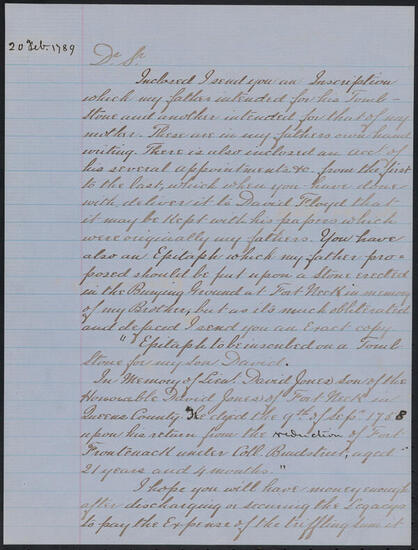 20 Feb. 1789
Dr Sr
Inclosed I send you an Inscription
which my father intended for his Tomb-
Stone and another intended for that of my
mother. These are in my fathers own hand
writing. There is also inclosed an acct of
his several appointments &c. from the first
to the last, which when you have done
with, deliver it to David Floyd that
it may be Kept with his papers which
were originally my fathers. You have
also an Epitaph which my father pro-
posed should be put upon a Stone erected
in the Burying Ground at Fort Neck in memory
of my Brother, but as its much obliterated
and defaced I send you an Exact copy.
"Epitaph to be insculped on a Tomb
Stone for my son David.
In Memory of Lieut. David Jones son of the
Honorable David Jones of Fort Neck in
Queens County He dyed the 9th of Sepr 1758
upon his return from the reduction of Fort
Frontenack under Coll. Bradstreet, aged
21 years and 4 months."
I hope you will have money enough
after discharging or securing the Legacys
to pay the Expense of the trifling sum it